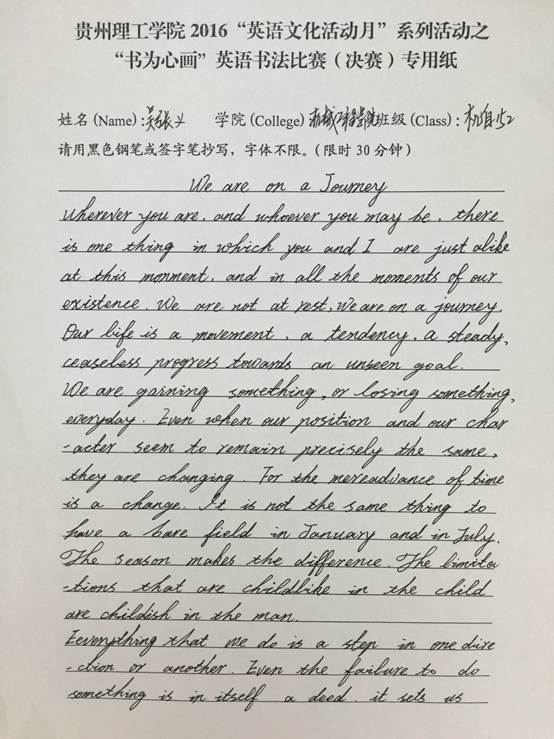 贵州理工学院 2016 “英语文化活动月” 系列活动之
“书为心画” 英语书法比赛（决赛）专用纸
姓名 (Name) : 吴张义 学院 (College) 机械工程学院 班级 (Class) : 机自152
请用黑色钢笔或签字笔抄写，字体不限。（限时 30 分钟）
We are on a Journey
Wherever you are, and whoever you may be, there
is one thing in which you and I are just alike
at this monment, and in all the moments of our
existence. We are not at rest, We are on a journey.
Our life is a movement, a tendency, a steady,
ceaseless progress towards an unseen goal.
We are gaining something, or losing something,
everyday. Even when our position and our char
-acter seem to remain precisely the same,
they are changing. For the mereadvance of time
is a change. It is not the same thing to
have a bare field in January and in July.
The season makes the difference. The limita
-tions that are childlike in the child
are childish in the man.
Eeverything that we do is a step in one dire
-ction or another. Even the failure to do
something is in itself a deed. it sets us